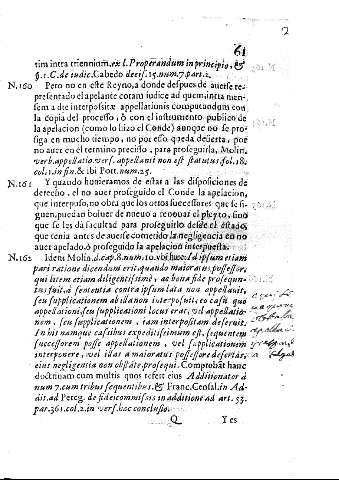 61
tim intra triennium, ex l. Properandum in principio, &
§. 1. C. de iudic. Cabedo decis. 25. num. 7. part. 2.
N. 160 Pero no en este Reyno, a donde despues de auerse re-
presentado el apelante coram iudice ad quem, intra men-
sem a die interpositæ appellationis computandum con
la copia del processo, ò con el instrumento publico de
la apelacion (como lo hizo el Conde) aunque no se pro-
siga en mucho tiempo, no por esso queda desierta, por
no auer en el termino preciso, para proseguirla, Molin.
verb. appellatio vers. appellanti non est statutus fol. 18.
col. 1. in fin. & ibi Port. num. 25.
N. 161 Y quando huuieramos de estar a las disposiciones de
derecho, el no auer proseguido el Conde la apelacion,
que interpuso, no obra que los otros successores que se si-
guen, puedan boluer de nueuo a renouar el pleyto, sino
que se les dà facultad para proseguirlo desde el estado,
que tenia antes de auerse cometido la negligencia en no
auer apelado, ò proseguido la apelacion interpuesta.
N. 162 Idem Molin. d. cap. 8. num. 10. vbi hæc: Id ipsum etiam
pari ratione dicendum erit, quando maioratus possessor,
qui litem etiam diligentissimè, ac bona fide prosequu-
tus fuit, à sententia contra ipsum lata non appellauit,
seu supplicationem ab illa non interposuit, eo casu quo
appellationi, seu supplicationi locus erat, vel appellatio-
nem, seu supplicationem, iam interpositam deseruit.
In his namque casibus expeditissimum est, sequentem
successorem posse appellationem, vel supplicationem
interponere, vel illas a maioratus possessore desertas,
eius negligentia non obstante, prosequi. Comprobãt hanc
doctrinam cum multis quos refert eius Additionator à
num. 7. cum tribus sequentibus, & Franc. Censal. in Ad-
dit. ad Pereg. de fideicommissis in additione ad art. 53.
par. 361. col. 2. in vers. hæc conclusio.
Q Y es